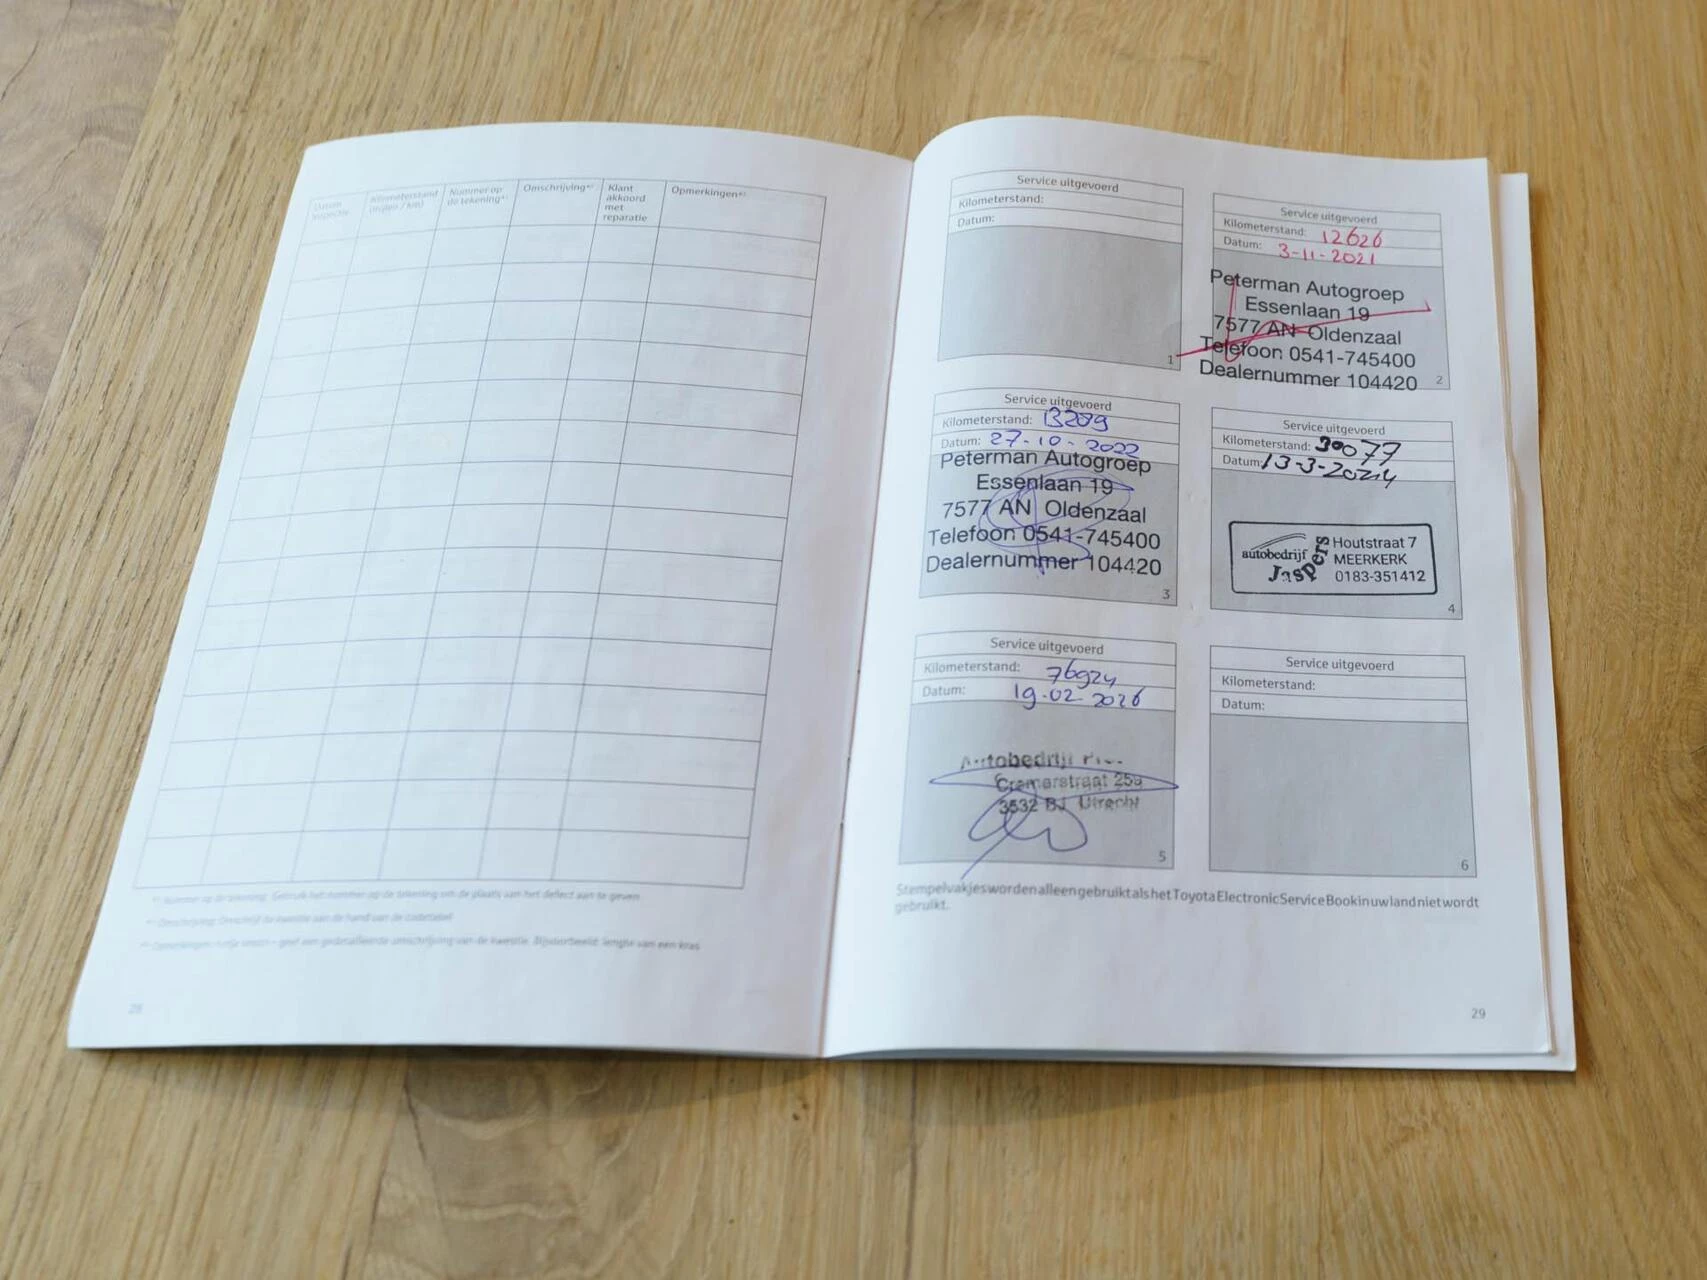 Datum inspectie
Kilometerstand (mijlen / km)
Nummer op de tekening*¹
Omschrijving*²
Klant akkoord met reparatie
Opmerkingen*³
*¹ Nummer op de tekening: Gebruik het nummer op de tekening om de plaats van het defect aan te geven
*² Omschrijving: Omschrijf de kwestie aan de hand van de codetabel
geef een gedetailleerde omschrijving van de kwestie. Bijvoorbeeld: lengte van een kras
28
Service uitgevoerd
Kilometerstand:
Datum:
1
Service uitgevoerd
Kilometerstand: 12626
Datum: 3-11-2021
Peterman Autogroep
Essenlaan 19
7577 AN Oldenzaal
Telefoon 0541-745400
Dealernummer 104420
2
Service uitgevoerd
Kilometerstand: 13289
Datum: 27-10-2022
Peterman Autogroep
Essenlaan 19
7577 AN Oldenzaal
Telefoon 0541-745400
Dealernummer 104420
3
Service uitgevoerd
Kilometerstand: 30077
Datum: 13-3-2024
autobedrijf Jaspers
Houtstraat 7
MEERKERK
0183-351412
4
Service uitgevoerd
Kilometerstand: 76924
Datum: 19-02-2026
Autobedrijf
Cremerstraat 259
3532 BJ Utrecht
5
Service uitgevoerd
Kilometerstand:
Datum:
6
Stempelvakjes worden alleen gebruikt als het Toyota Electronic Service Book in uw land niet wordt
gebruikt.
29